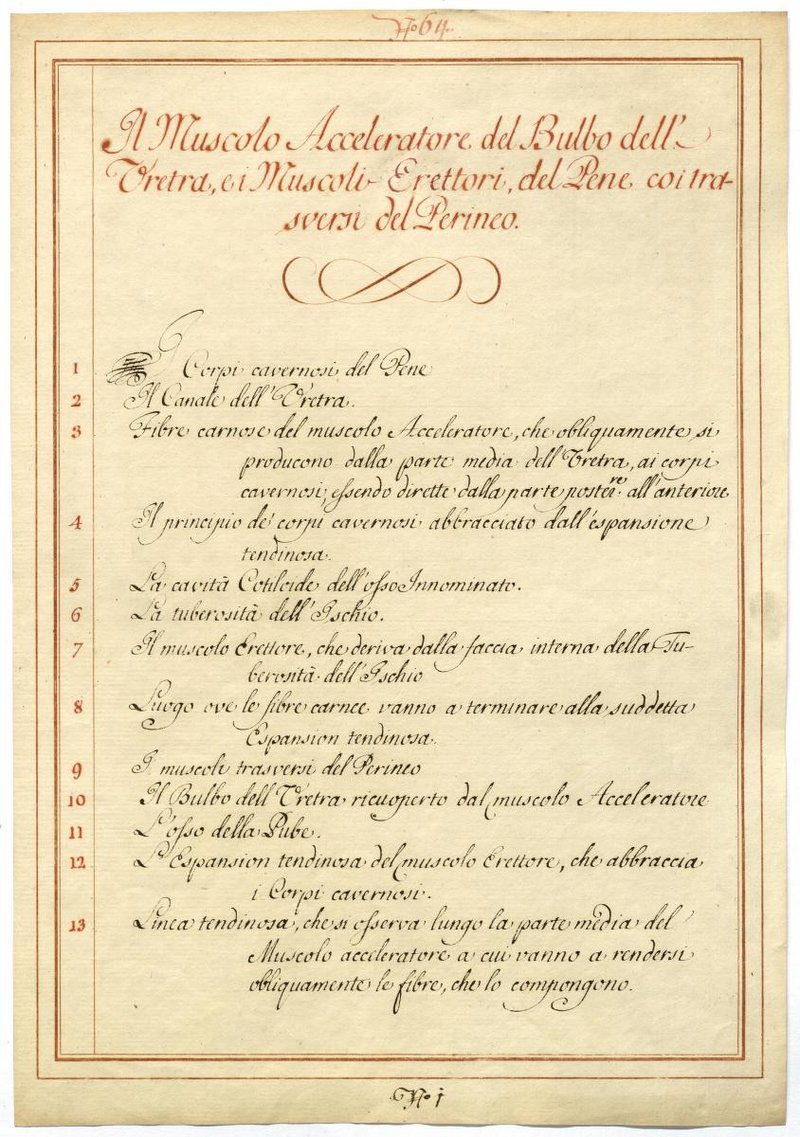 No. 64.
Il Muscolo Acceleratore del Bulbo dell'
Vretra, e i Muscoli Erettori, del Pene coi tra-
sversi del Perineo.
1 I Corpi cavernosi del Pene
2 Il Canale dell'Vretra.
3 Fibre carnose del muscolo Acceleratore, che obliquamente si
producono dalla parte media dell'Vretra, ai corpi
cavernosi, essendo dirette dalla parte poster.re all'anteriore
4 Il principio de' corpi cavernosi abbracciato dall'espansione
tendinosa.
5 La cavità Cotiloide dell'osso Innominato.
6 La tuberosità dell'Ischio.
7 Il muscolo Erettore, che deriva dalla faccia interna della Tu-
berosità dell'Ischio
8 Luogo ove le fibre carnee vanno a terminare alla suddetta
Espansion tendinosa.
9 I muscoli trasversi del Perineo
10 Il Bulbo dell'Vretra ricuoperto dal muscolo Acceleratore
11 L'osso della Pube.
12 L'Espansion tendinosa del muscolo Erettore, che abbraccia
i Corpi cavernosi.
13 Linea tendinosa, che si osserva lungo la parte media del
Muscolo acceleratore a cui vanno a rendersi
obliquamente le fibre, che lo compongono.
No. 1